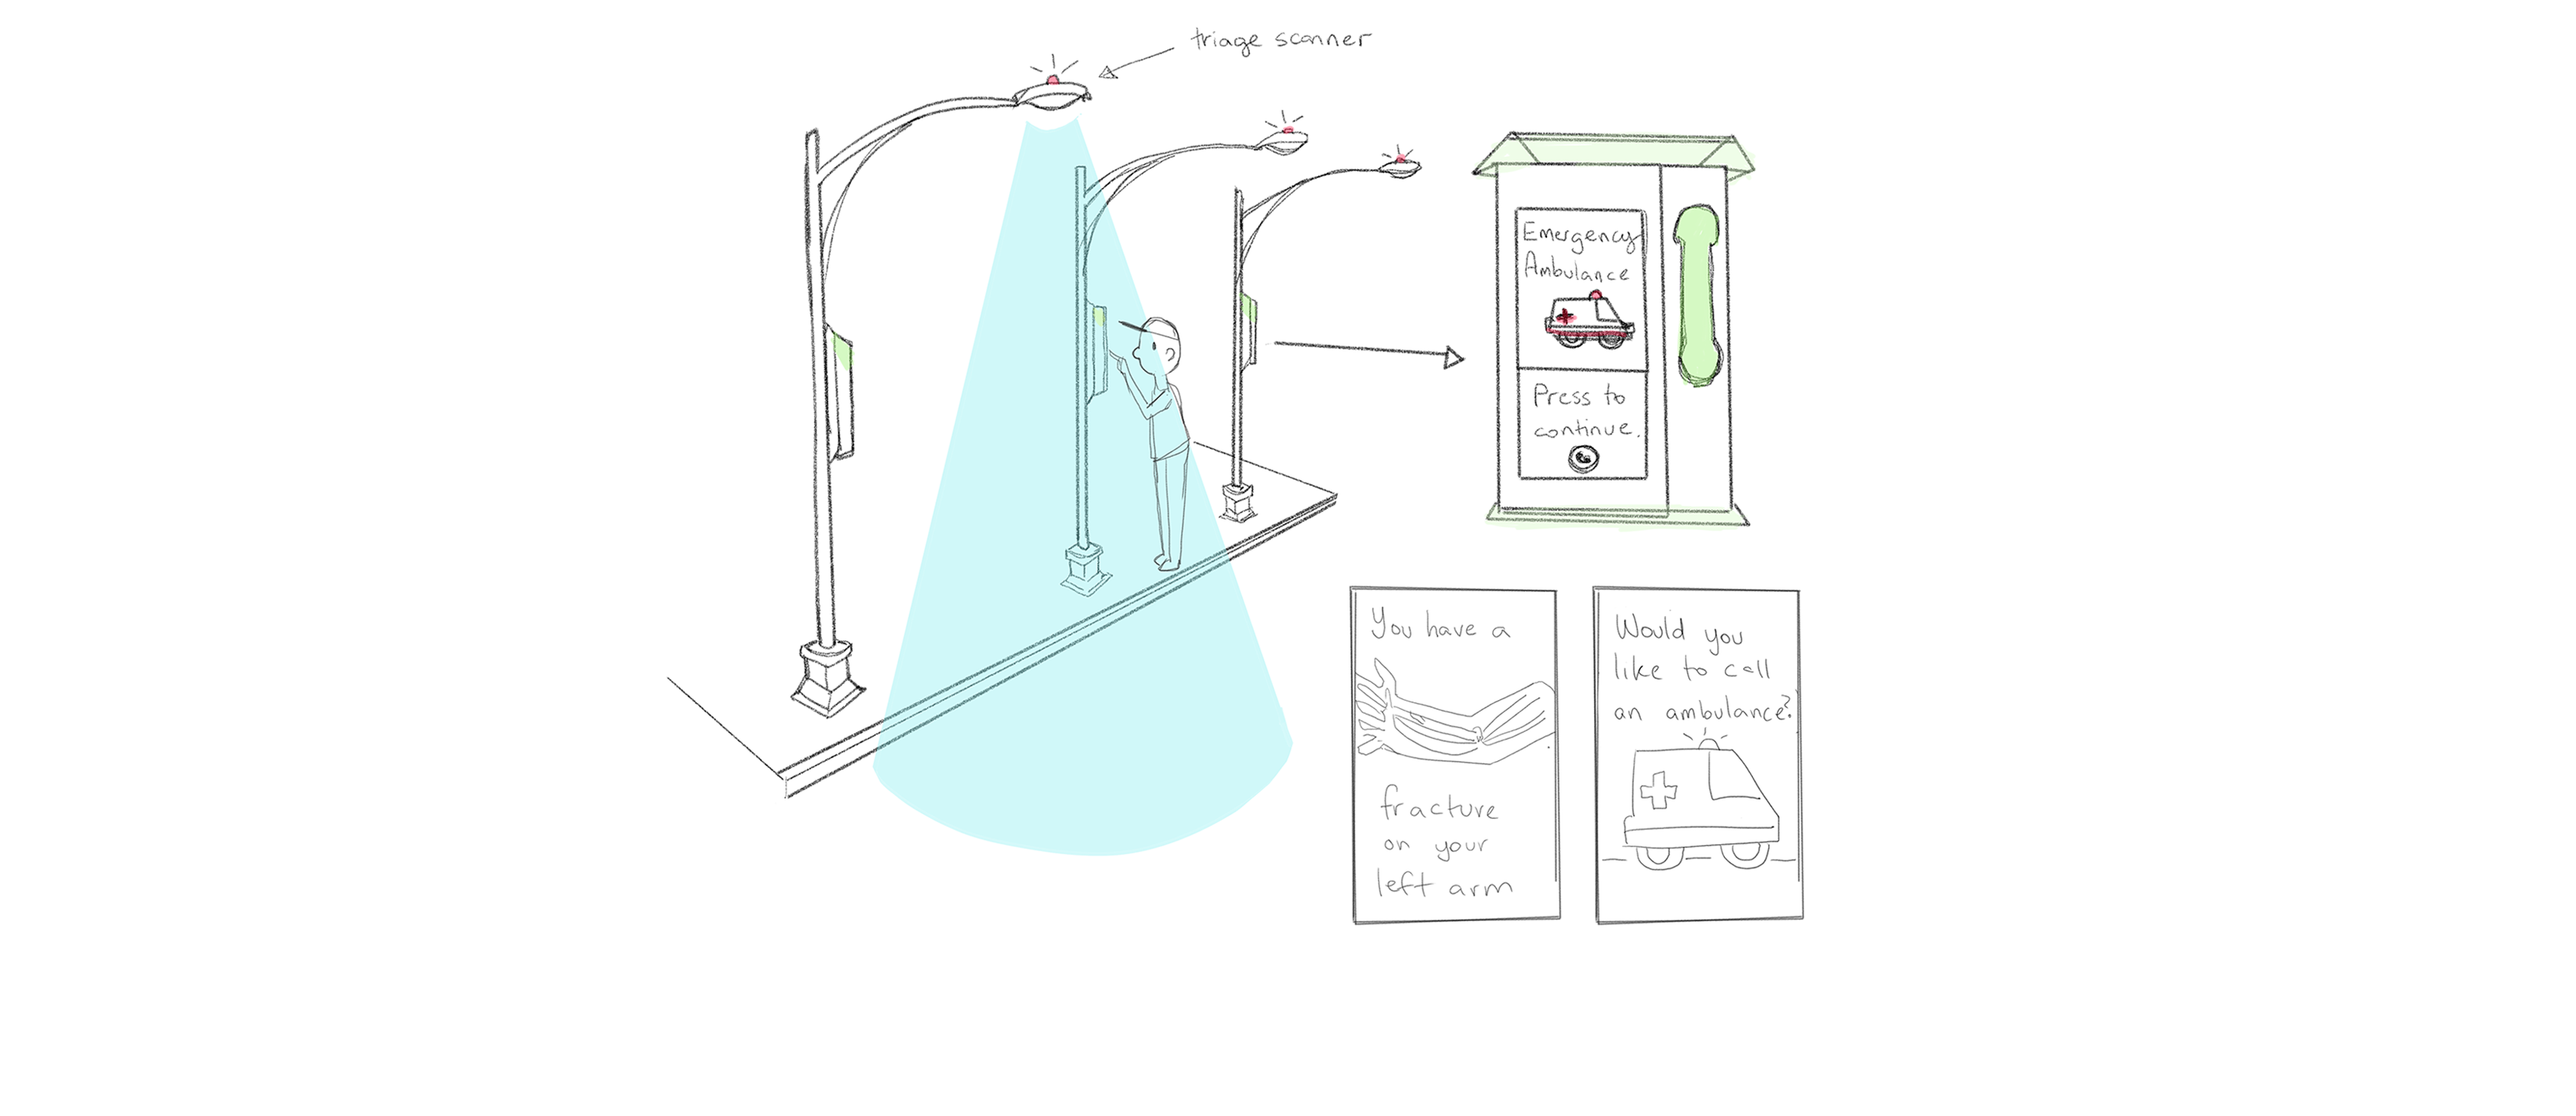 triage scanner
Emergency
Ambulance
Press to
continue.
You have a
fracture
on your
left arm
Would you
like to call
an ambulance?